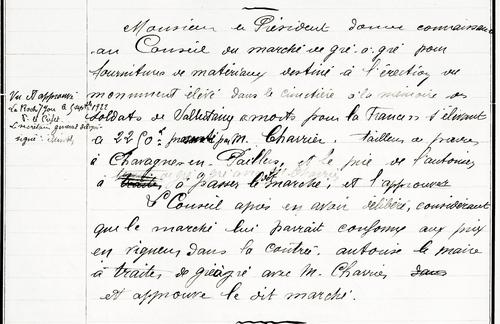 Monsieur le Président donne connaissance
au Conseil du marché de gré à gré pour
fournitures de matériaux destiné à l'érection du
monument élevé dans le cimetière à la mémoire des
soldats de morts pour la France s'élevant
à 2250f M. Charrier tailleur de pierres
à Chavagnes-en-Paillers, et le prie de l'autoriser
à traiter à passer le dit marché, et l'approuver
Le Conseil après en avoir délibéré, considérant
que le marché lui parrait conforme aux prix
en vigueur dans la contrée, autorise le maire
à traiter de gré à gré avec M. Charrier dans
et approuve le dit marché.
Vu et approuvé
La Roche s/Yon le 9 7bre 1922
P. le Préfet
Le secrétaire général
signé :